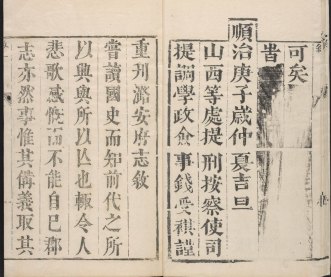 可矣
旹
順治庚子歳仲夏吉旦
山西等處提刑按察使司
提調學政僉事錢受祺謹
重刋潞安府志敘
嘗讀國史而知前代之所
以興與所以亾也輒令人
悲歌感慨而不能自已郡
志亦然事惟其備義取其